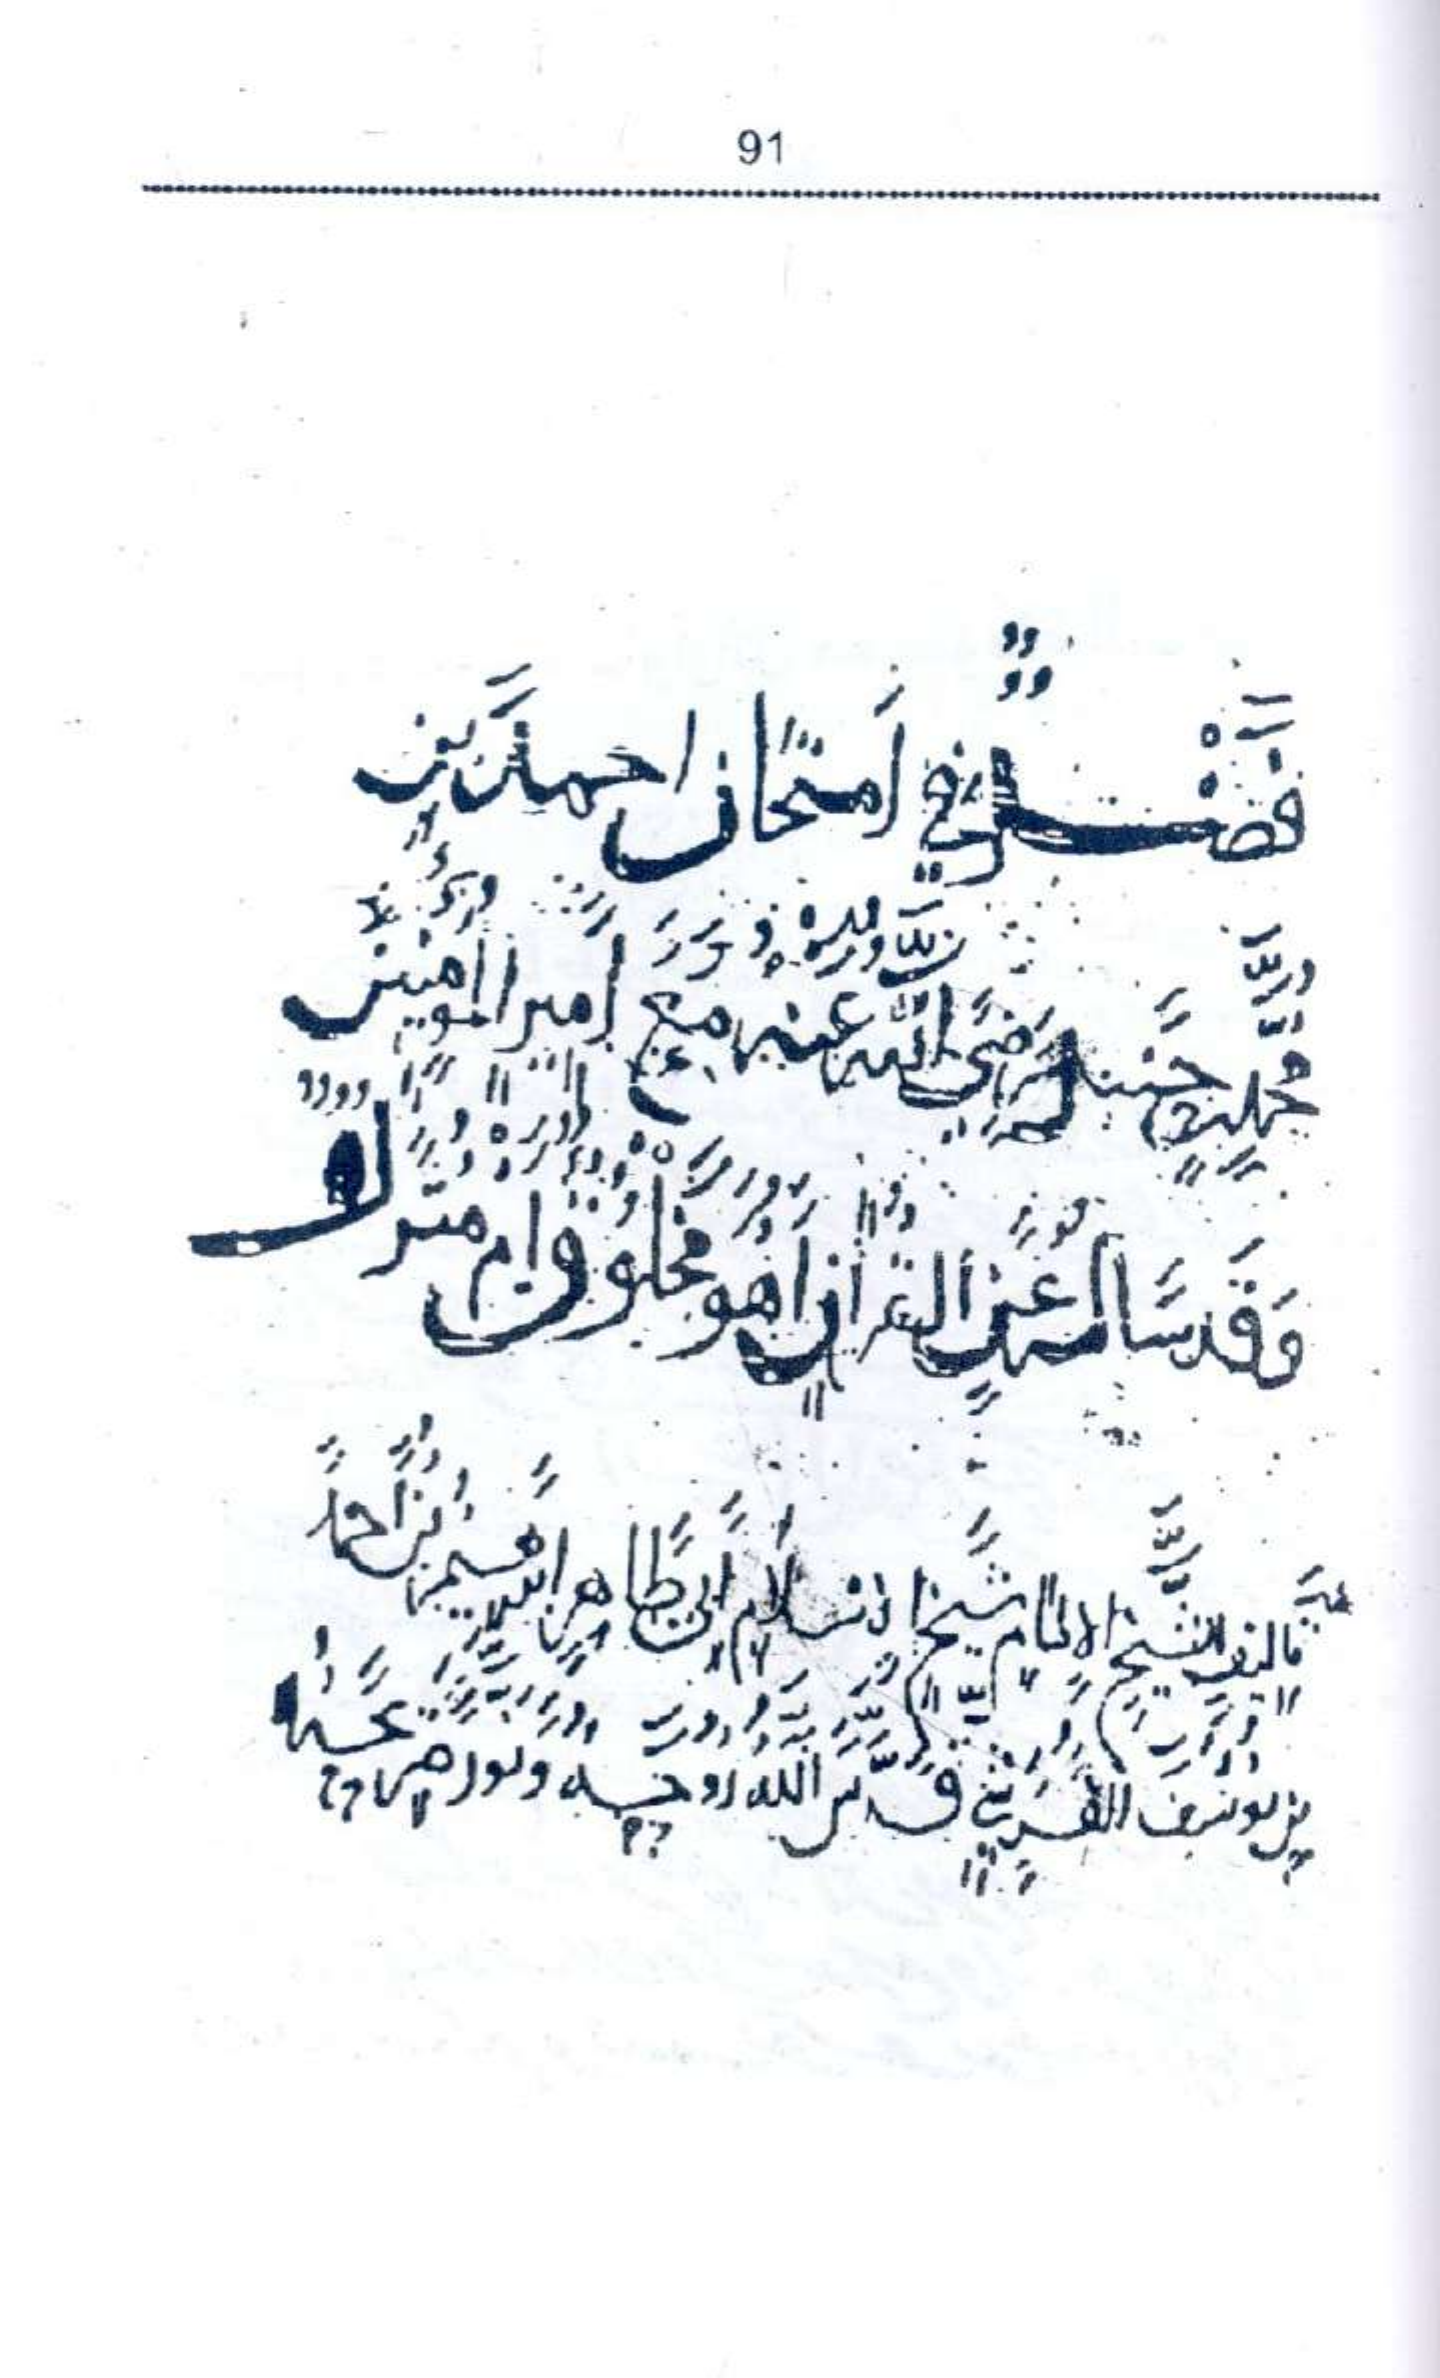 91
فَصْلٌ في امتحان احمد بن
محمد بن حنبل رضي الله عنه مع امير المومنين
وقد ساله عن القران اهو مخلوق ام منزل
تاليف الشيخ الامام شيخ الاسلام ابي طاهر ابرهيم بن احمد
بن يوسف القرشي قدس الله روحه ونور ضريحه